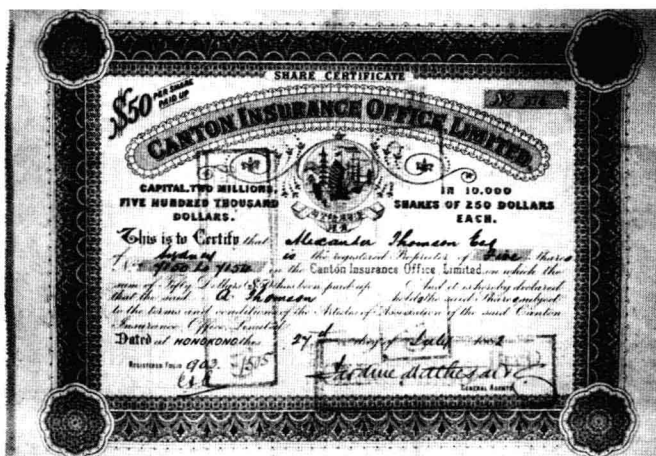 SHARE CERTIFICATE
$50 PER SHARE PAID UP
CANTON INSURANCE OFFICE LIMITED
CAPITAL. TWO MILLIONS,
FIVE HUNDRED THOUSAND
DOLLARS.
IN 10.000
SHARES OF 250 DOLLARS
EACH.
This is to Certify that Alexander Thomson Esq
of Sydney is the registered Proprietor of Five Shares
7150 to 7154 in the Canton Insurance Office Limited on which the
sum of Fifty Dollars $50 has been paid up And it is hereby declared
that the said A Thomson holds the said Shares subject
to the terms and conditions of the Articles of Association of the said Canton
Insurance Office Limited
Dated at HONGKONG this 27th day of July
REGISTERED FOLIO 903.
Jardine Matheson & Co
GENERAL AGENTS